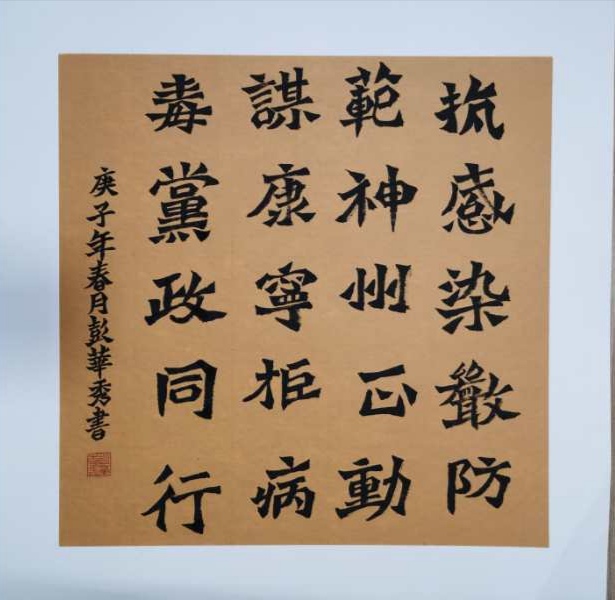 抗感染嚴防
範神州正動
謀康寧拒病
毒黨政同行
庚子年春月彭華秀書